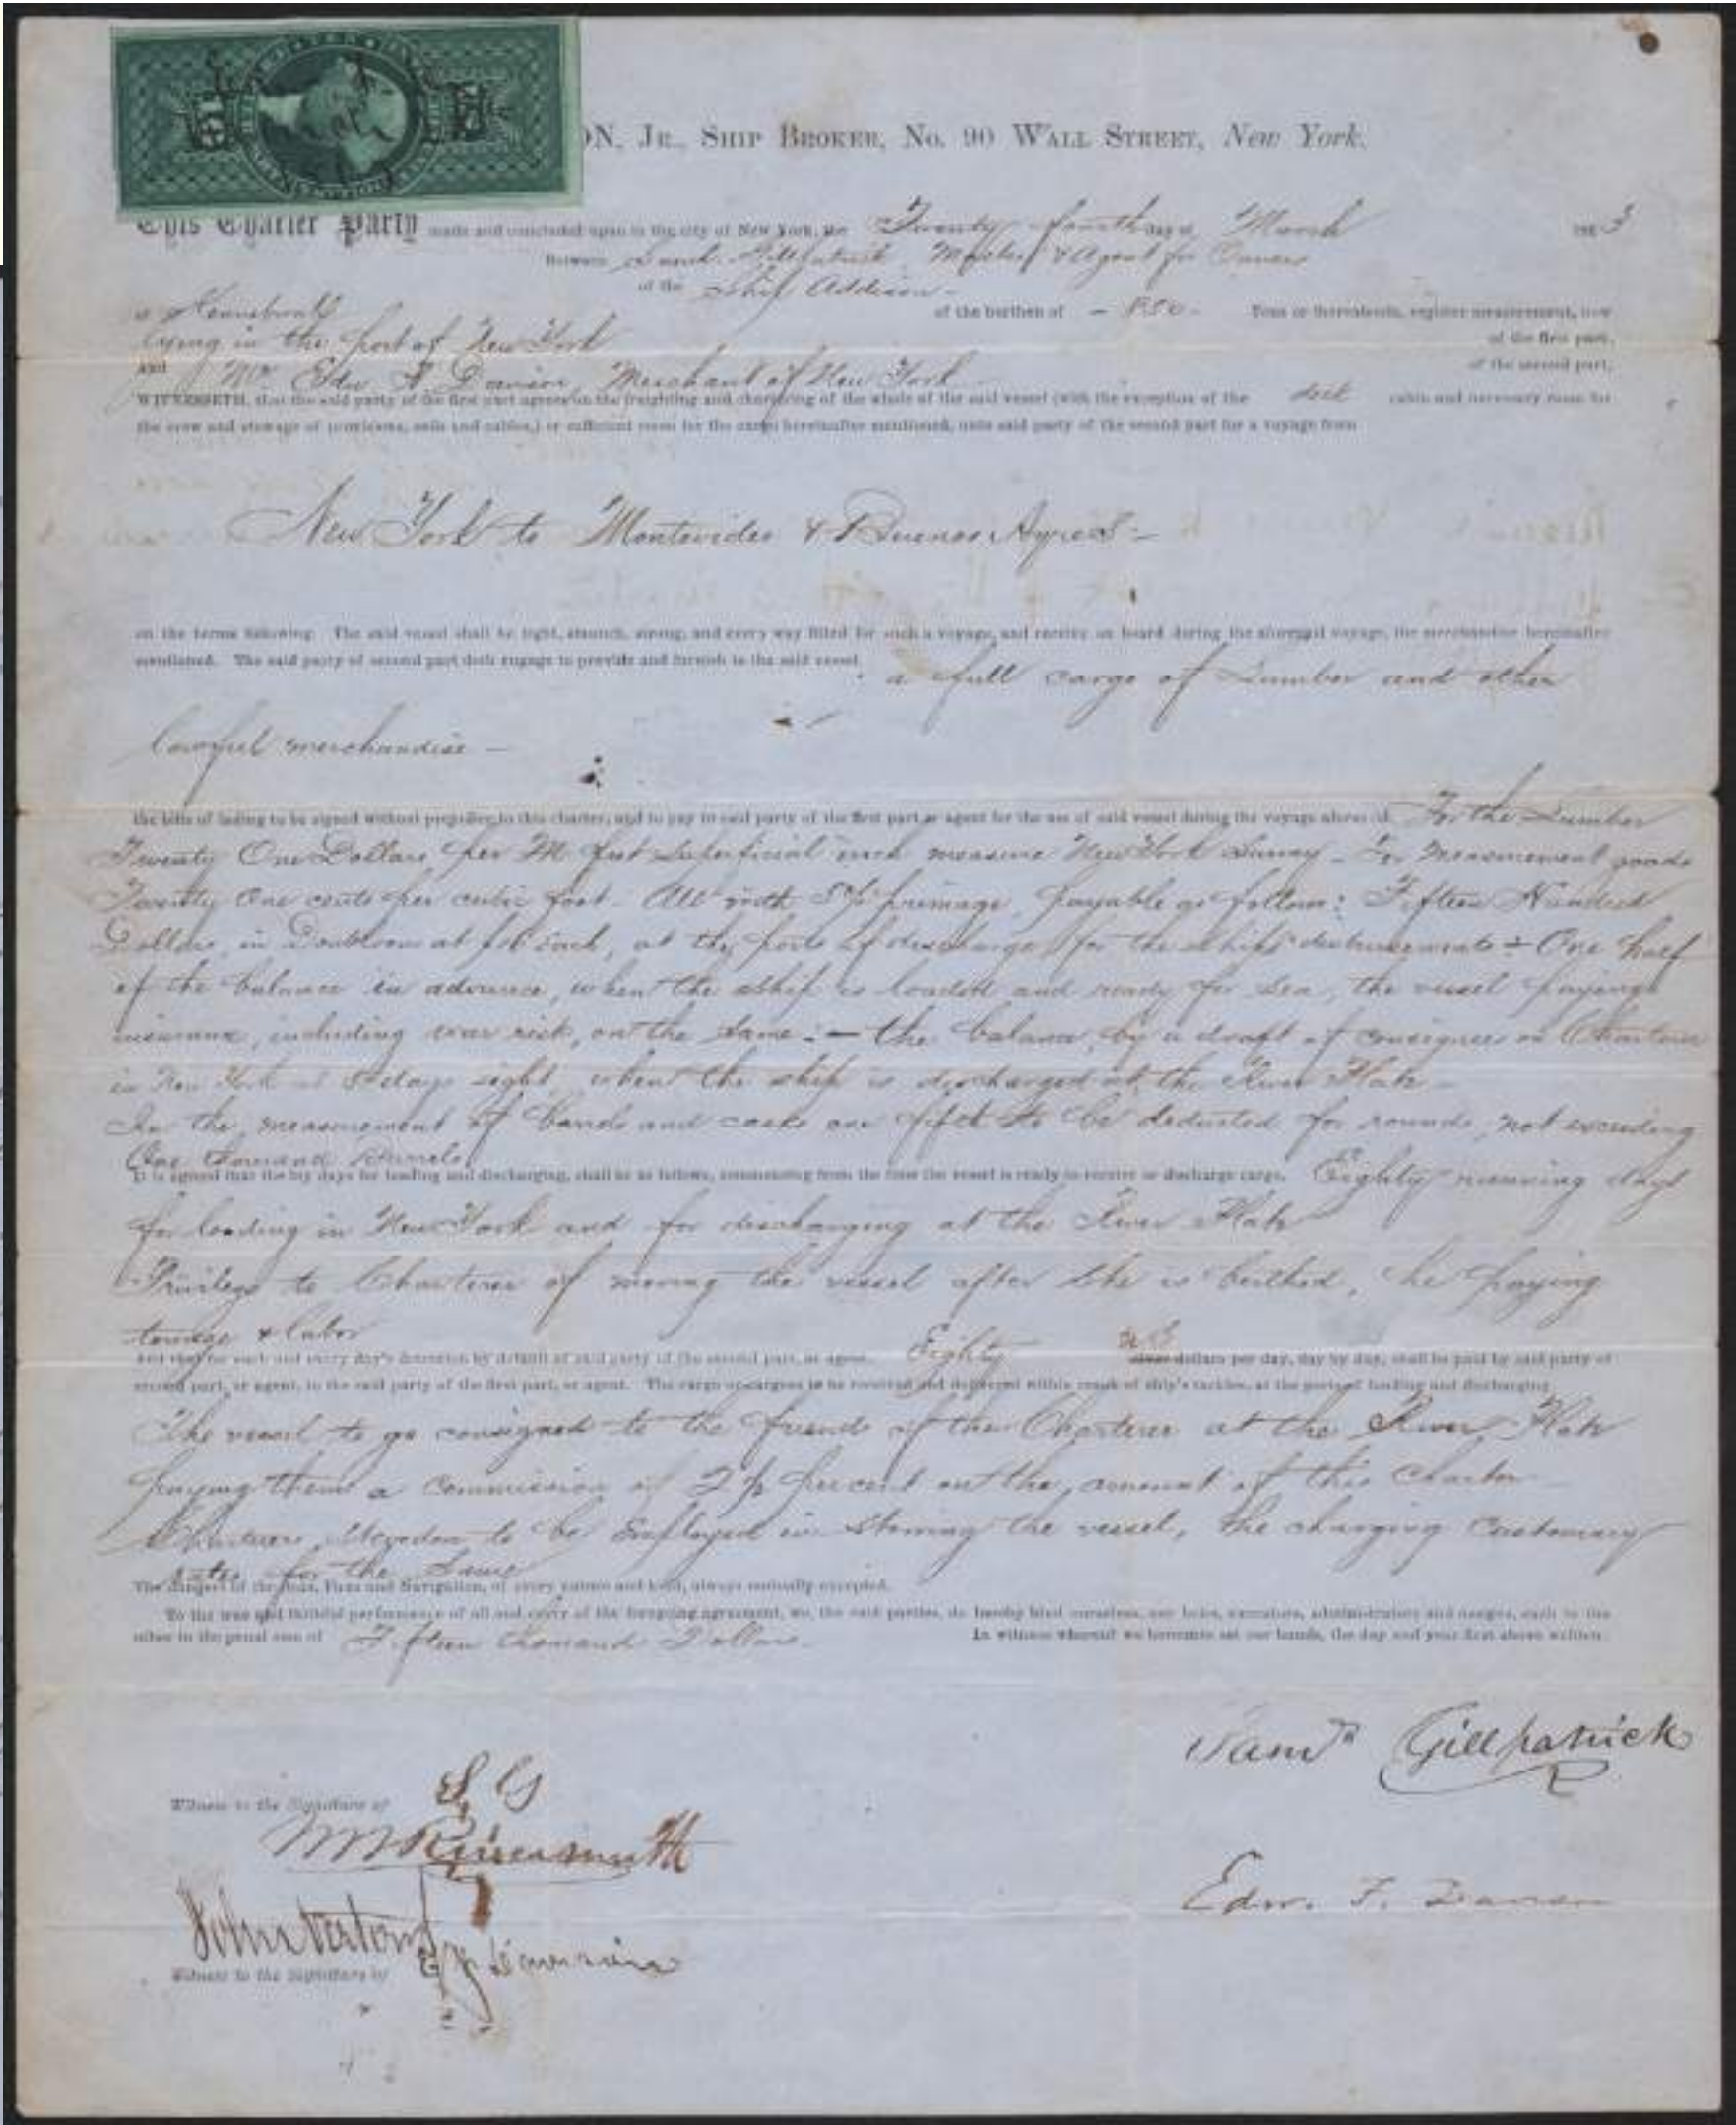 ON, JR., SHIP BROKER, NO. 90 WALL STREET, New York.
This Charter Party made and concluded upon in the city of New York, the Twenty fourth day of March 186 3
Between Saml. Gillpatrick, Master & Agent for Owners
of the Ship Addison -
of the burthen of - 850 - Tons or thereabouts, register measurement, now
lying in the port of New York of the first part,
and Mr Edw F. Davison, Merchant of New York of the second part,
WITNESSETH, that the said party of the first part agrees on the freighting and chartering of the whole of the said vessel (with the exception of the deck cabin and necessary room for
the crew and stowage of provisions, sails and cables,) or sufficient room for the cargo hereinafter mentioned, unto said party of the second part for a voyage from
New York to Montevideo & Buenos Ayres -
on the terms following. The said vessel shall be tight, staunch, strong, and every way fitted for such a voyage, and receive on board during the aforesaid voyage, the merchandise hereinafter
mentioned. The said party of second part doth engage to provide and furnish to the said vessel, a full cargo of Lumber and other
lawful merchandise -
the bills of lading to be signed without prejudice to this charter, and to pay to said party of the first part or agent for the use of said vessel during the voyage aforesaid, For the Lumber
Twenty One Dollars per M feet superficial inch measure New York Survey - For Measurement goods
Twenty One cents per cubic foot. All with 5% primage, payable as follows: Fifteen Hundred
Dollars, in Doubloons at $16 each, at the ports of discharge for the ships disbursements - One half
of the balance in advance, when the ship is loaded and ready for Sea, the vessel paying
insurance, including war risk, on the same: - the balance by a draft of consignees on Charterer
in New York at days sight, when the ship is discharged at the River Plate -
In the measurement of barrels and casks one fifth to be deducted for rounds, not exceeding
One thousand Barrels.
It is agreed that the lay days for loading and discharging, shall be as follows, commencing from the time the vessel is ready to receive or discharge cargo. Eighty running days
for loading in New York and for discharging at the River Plate
Privilege to Charterer of moving the vessel after she is berthed, he paying
towage & labor
And that for each and every day's detention by default of said party of the second part, or agent, Eighty dollars per day, day by day, shall be paid by said party of
second part, or agent, to the said party of the first part, or agent. The cargo or cargoes to be received and delivered within reach of ship's tackles, at the ports of loading and discharging
The vessel to go consigned to the friends of the Charterer at the River Plate
paying them a commission of 2½ per cent on the amount of this Charter
Charterers Stevedore to be Employed in Stowing the vessel, he charging Customary
rates for the Same
The dangers of the Seas, Fires and Navigation, of every nature and kind, always mutually excepted.
To the true and faithful performance of all and every of the foregoing agreement, we, the said parties, do hereby bind ourselves, our heirs, executors, administrators and assigns, each to the
other in the penal sum of Fifteen thousand Dollars. In witness whereof we hereunto set our hands, the day and year first above written.
Saml Gillpatrick
Witness to the Signature of S. G
Edw. F. Davison
Witness to the Signature of E F Davison